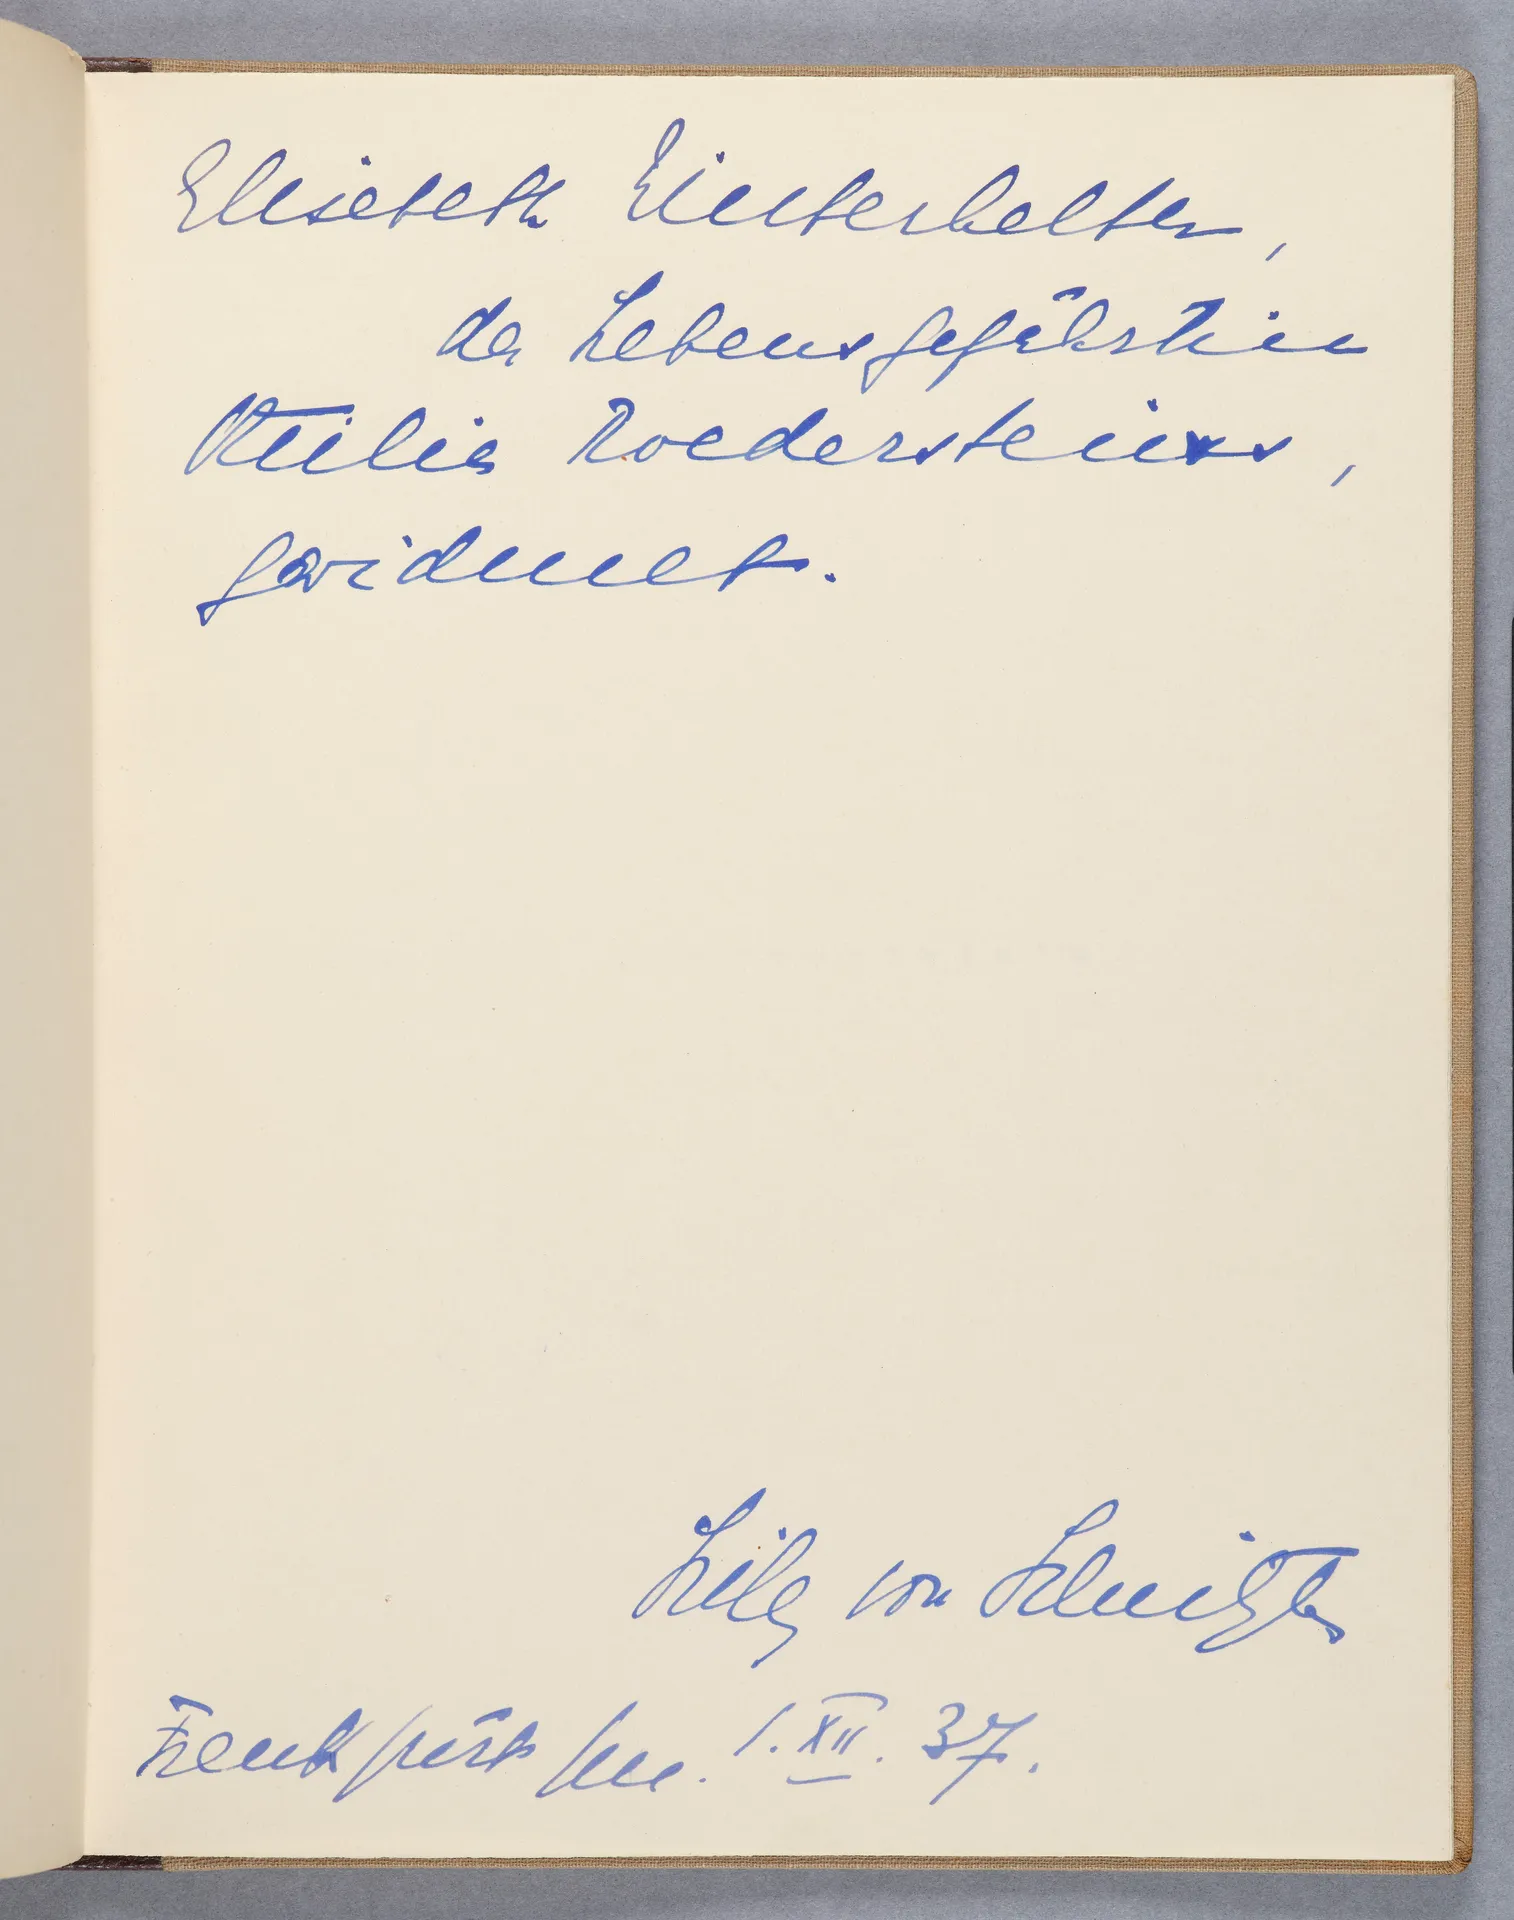 Elisabeth Winterhalter,
der Lebensgefährtin
Ottilie Roedersteins,
gewidmet.
Lily von Schnitzler
Frankfurt /M. 1. XII. 37.